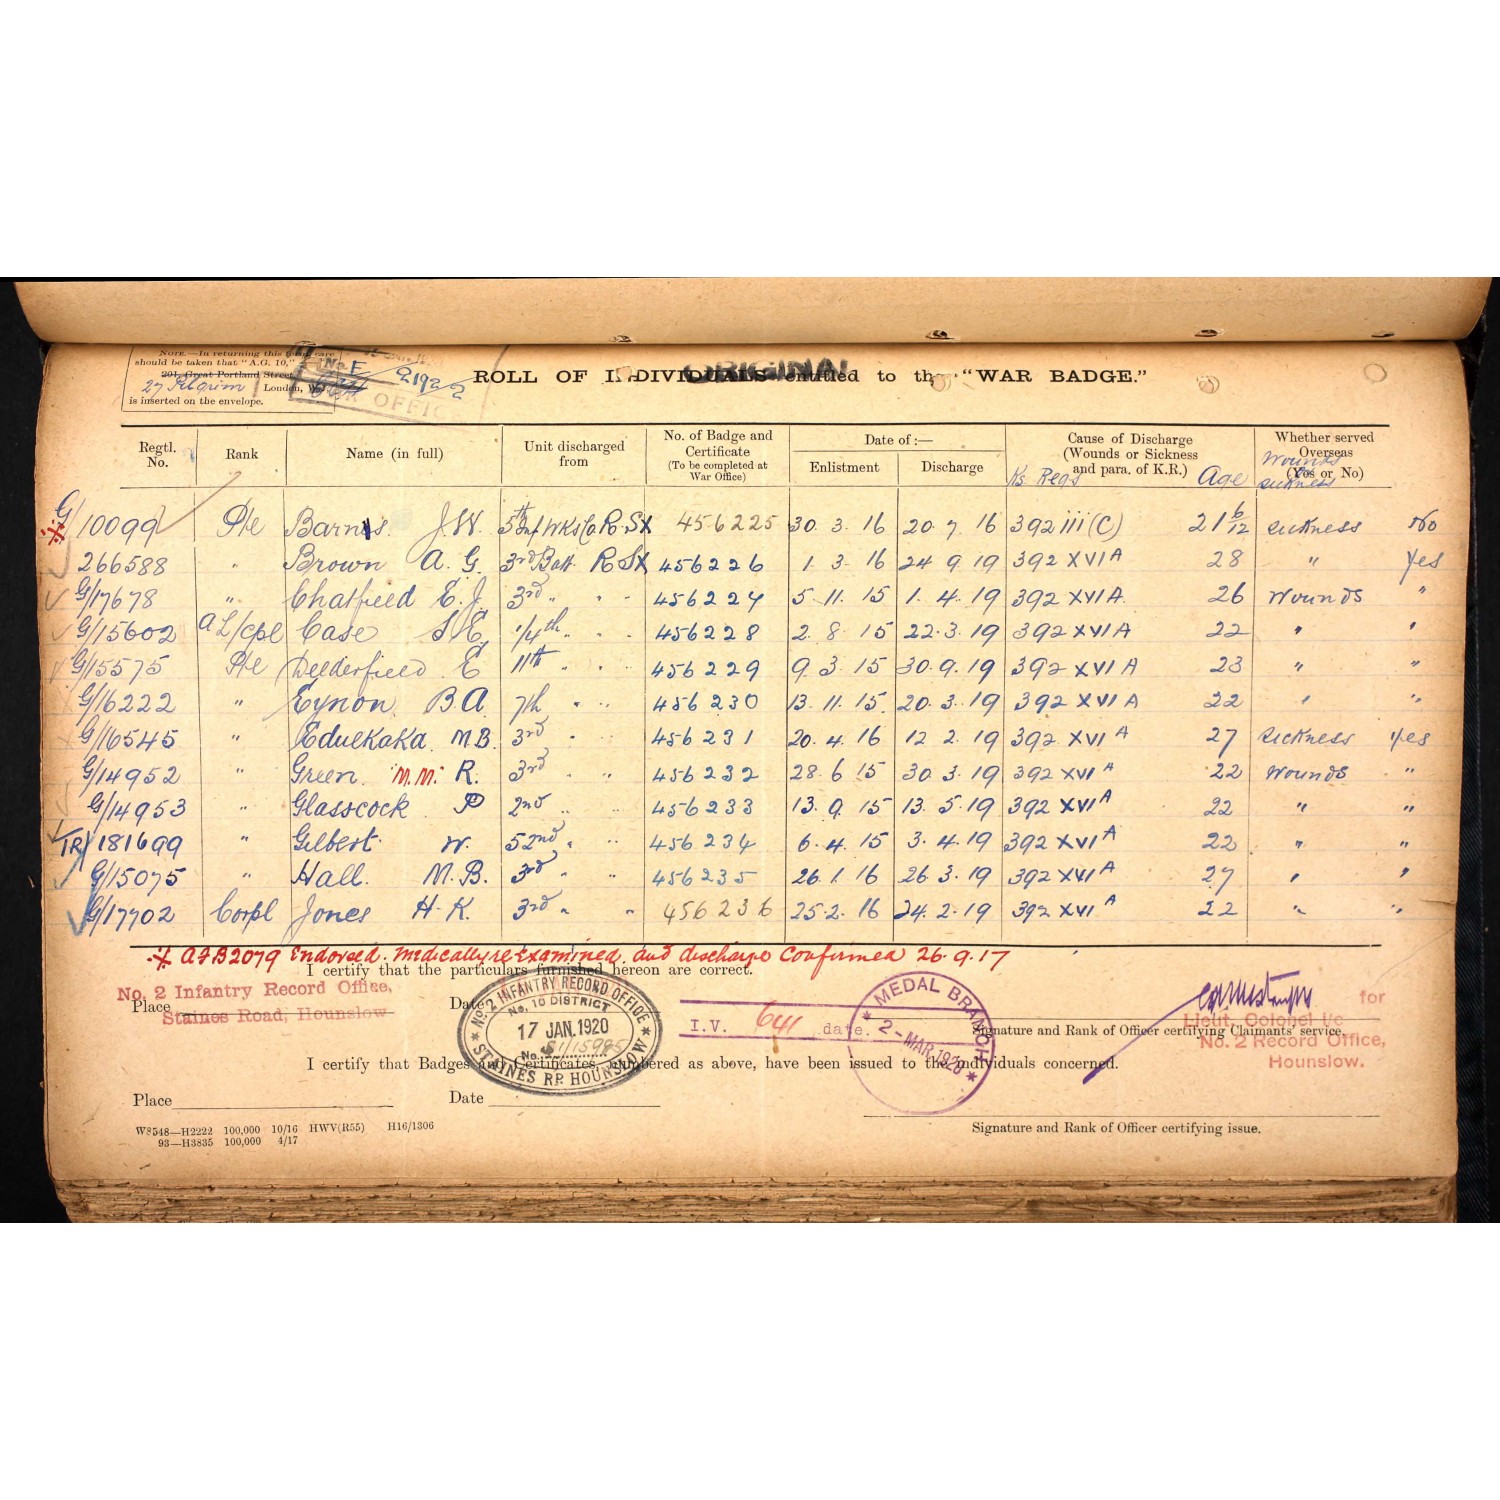 NOTE.—In returning this form, care
should be taken that "A.G. 10,"
201, Great Portland Street,
27 Pilgrim London, W.
is inserted on the envelope.
No. E
OFFICE
ORIGINAL
ROLL OF INDIVIDUALS entitled to the "WAR BADGE."
Regtl. No. Rank Name (in full) Unit discharged from No. of Badge and Certificate (To be completed at War Office) Date of:— Enlistment Discharge Cause of Discharge (Wounds or Sickness and para. of K.R.) Ks Regs Age Whether served Overseas (Yes or No) Wounds or sickness
G/10099 Pte Barnes J.W. 5th Inf Wks Co R. Sx 456225 30. 3. 16 20. 7. 16 392 iii (C) 21 6/12 sickness No
266588 " Brown A. G. 3rd Batt R Sx 456226 1. 3. 16 24 9. 19 392 XVI A 28 " Yes
G/17678 " Chatfield E. J. 3rd " " " 456227 5. 11. 15 1. 4. 19 392 XVI A. 26 Wounds "
G/15602 A L/Cpl Case S. E. 1/4th " " 456228 2. 8. 15 22. 3. 19 392 XVI A 22 " "
G/15575 Pte Delderfield E 11th " " 456229 9. 3. 15 30. 9. 19 392 XVI A 23 " "
G/16222 " Eynon B A. 7th " " 456230 13. 11. 15. 20. 3. 19 392 XVI A 22 " "
G/16545 " Eduekaka M. B. 3rd " " 456231 20. 4. 16 12 2. 19 392 XVI A 27 sickness Yes
G/14952 " Green "M.M." R. 3rd " " 456232 28. 6 15 30. 3. 19 392 XVI A 22 Wounds "
G/14953 " Glasscock P 2nd " " 456233 13. 9. 15 13. 5. 19 392 XVI A 22 " "
TR/181699 " Gilbert W. 52nd " " 456234 6. 4. 15 3. 4. 19 392 XVI A 22 " "
G/15075 " Hall. M. B. 3rd " " 456235 26. 1. 16 26. 3. 19 392 XVI A 27 " "
G/17702 Corpl Jones H. K. 3rd " " 456236 25. 2. 16 24. 2. 19 392 XVI A 22 " "
※ A F B2079 Endorsed. Medically re-examined and discharge Confirmed 26. 9. 17
I certify that the particulars furnished hereon are correct.
No. 2 Infantry Record Office,
Place Date
Staines Road, Hounslow
No. 2 INFANTRY RECORD OFFICE
No. 10 DISTRICT
17 JAN. 1920
No. 51/15985
STAINES RD. HOUNSLOW
I.V. 641 date.
MEDAL BRANCH
2 - MAR. 1920
for
Signature and Rank of Officer certifying Claimants' service.
Lieut. Colonel i/c
No. 2 Record Office,
Hounslow.
I certify that Badges and Certificates, numbered as above, have been issued to the individuals concerned.
Place Date
W8548—H2222 100,000 10/16 HWV(R55) H16/1306
93—H3835 100,000 4/17
Signature and Rank of Officer certifying issue.